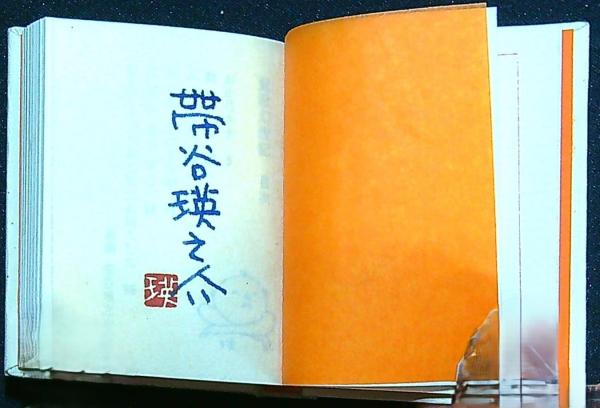 帯谷瑛之介
瑛